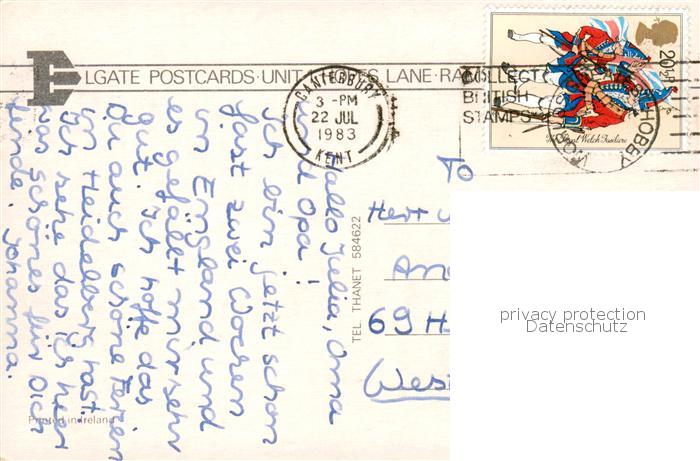 ELGATE POSTCARDS · UNIT S LANE · RA
CANTERBURY
3 - PM
22 JUL
1983
KENT
COLLECT
BRITISH
STAMPS
HOBBY
20½p
The Royal Welch Fusiliers
Hallo Julia, Oma
und Opa!
Ich bin jetzt schon
fast zwei Wochen
in England und
es gefällt mir sehr
gut. Ich hoffe das
Du auch schöne Ferien
in Heidelberg hast.
Ich sehe das ich hier
was schönes für Dich
finde. Johanna.
TEL. THANET 584622
To
Herr
An
69 H
Wes
Printed in Ireland
privacy protection
Datenschutz